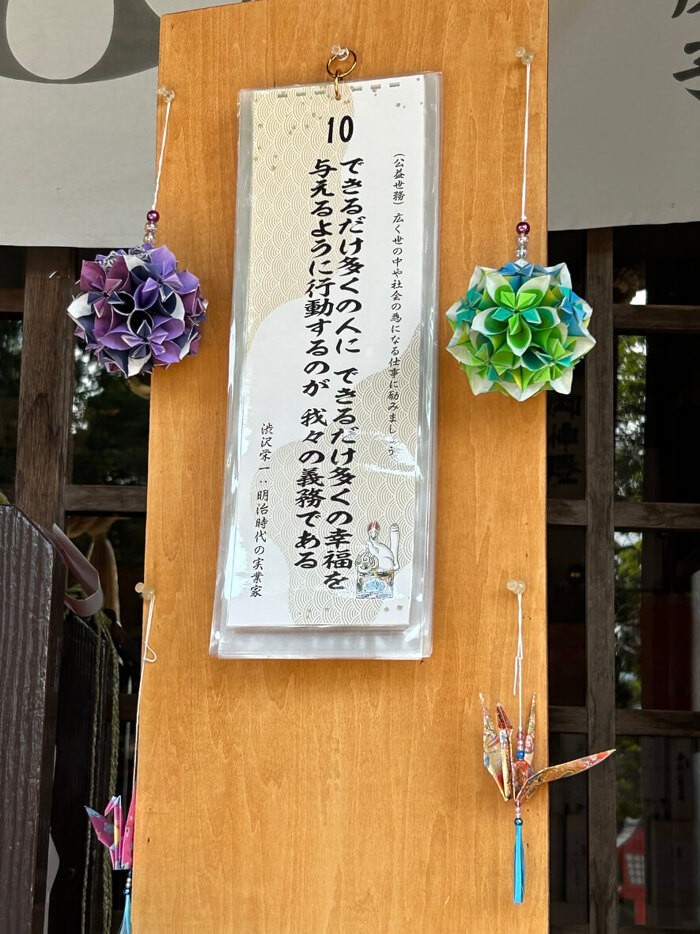 10
（公益世務）広く世の中や社会の為になる仕事に励みましょう
できるだけ多くの人に できるだけ多くの幸福を
与えるように行動するのが 我々の義務である
渋沢栄一：明治時代の実業家